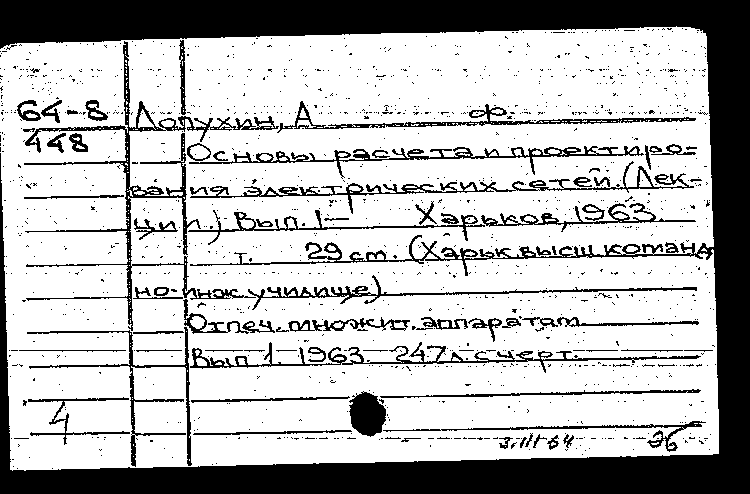 64-8 Лопухин, А ф.
448 Основы расчета и проектиро=
вания электрических сетей. (Лек-
ции.) Вып. 1— Харьков, 1963.
т. 29 см. (Харьк. высш. команд
но-инж. училище)
Отпеч. множит. аппаратом
Вып 1. 1963. 247 л. с черт.
4
3.III 64